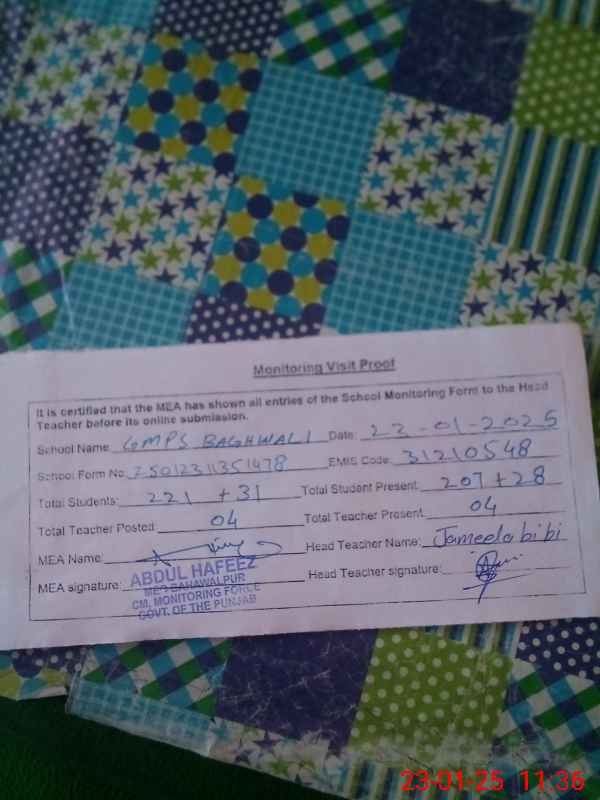 Monitoring Visit Proof
It is certified that the MEA has shown all entries of the School Monitoring Form to the Head
Teacher before its online submission.
School Name: GMPS BAGHWALI Date: 23-01-2025
School Form No: EMIS Code: 31210548
Total Students: 221 + 31 Total Student Present: 207 + 28
Total Teacher Posted: 04 Total Teacher Present: 04
MEA Name: Head Teacher Name: Jameela bibi
MEA signature: Head Teacher signature:
ABDUL HAFEEZ
MEA BAHAWALPUR
CM, MONITORING FORCE
GOVT. OF THE PUNJAB
23-01-25 11:36